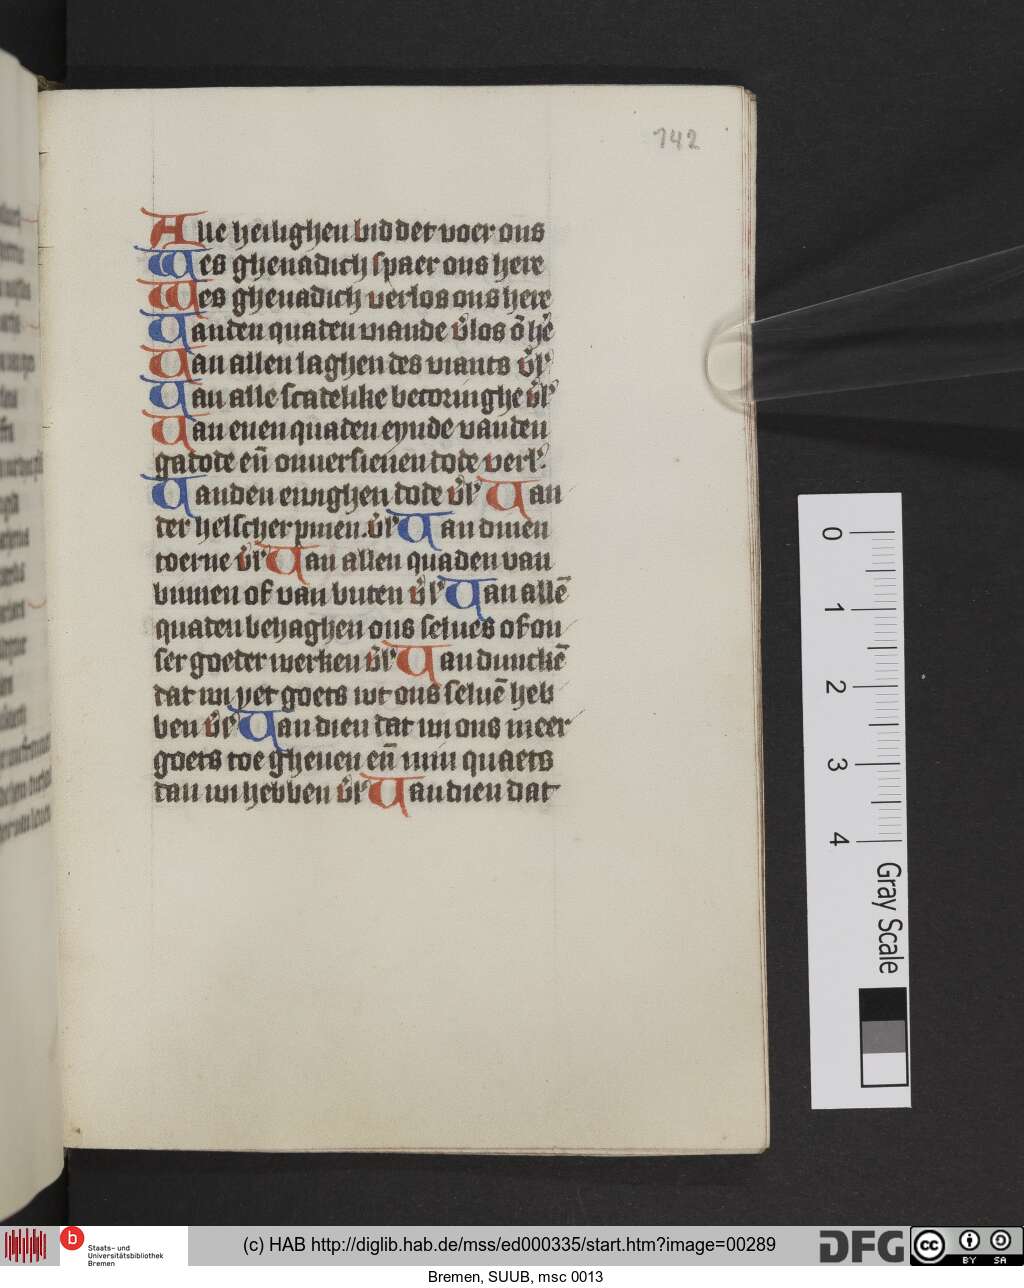 142
Alle heilighen biddet voer ons
Wes ghenadich spaer ons here
Wes ghenadich verlos ons here
Vanden quaden viande v̉los ō hẻ
Van allen laghen des viants v̉lꝰ
Van alle scadelike becoringhe v̉lꝰ
Van enen quaden eynde van den
gadode en̄ onuersienen dode verlꝰ
Vanden ewighen dode v̉lꝰ Van
der helscher pinen. v̉lꝰ Van dinen
toerne v̉lꝰ Van allen quaden van
binnen of van buten v̉lꝰ Van allē
quaden behaghen ons selues of on
ser goeder werken v̉lꝰ Van dunckē
dat wi yet goets wt ons seluē heb
ben v̉lꝰ Van dien dat wi ons meer
goets toe gheuen en̄ min quaets
dan wi hebben v̉lꝰ Van dien dat
0
1
2
3
4
Gray Scale
b
Staats- und
Universitätsbibliothek
Bremen
(c) HAB http://diglib.hab.de/mss/ed000335/start.htm?image=00289
DFG
cc
BY SA
Bremen, SUUB, msc 0013